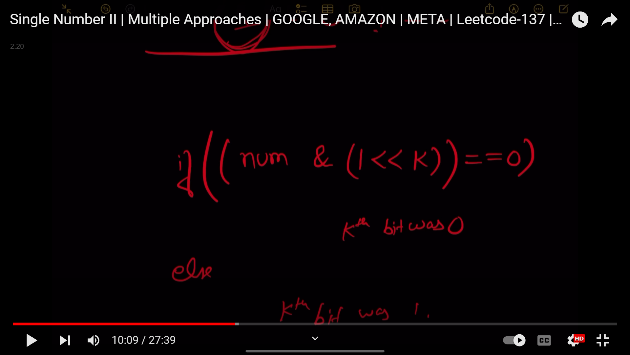 Single Number II | Multiple Approaches | GOOGLE, AMAZON | META | Leetcode-137 |...
2.20
if ((num & (1<<K))==0)
Kth bit was 0
else
Kth bit was 1.
10:09 / 27:39
CC HD